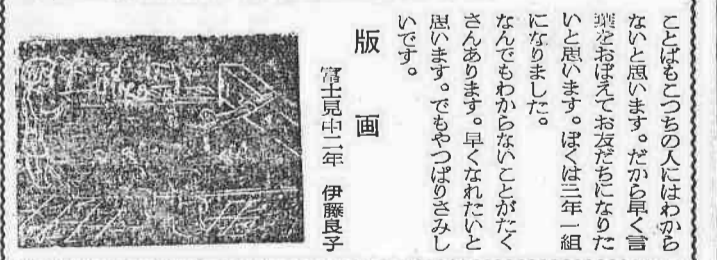 ことばもこつちの人にはわから
ないと思います。だから早く言
葉をおぼえてお友だちになりた
いと思います。ぼくは三年一組
になりました。
なんでもわからないことがたく
さんあります。早くなれたいと
思います。でもやつぱりさみし
いです。
版画
富士見中二年　伊藤良子